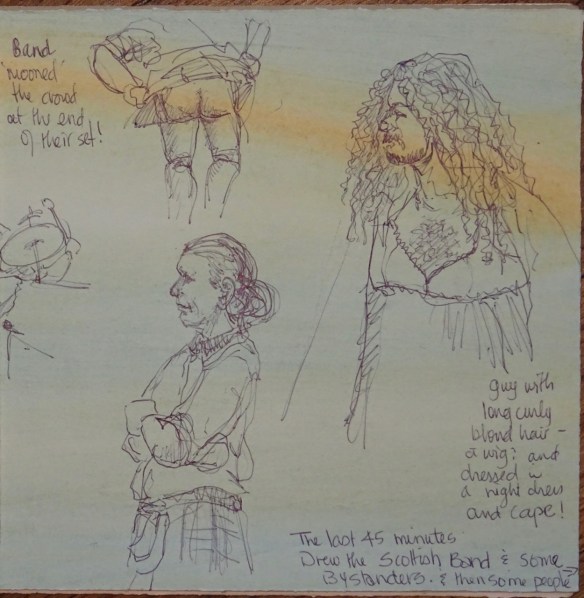 Band
'mooned'
the crowd
at the end
of their set!
guy with
long curly
blond hair -
a wig? and
dressed in
a night dress
and cape!
The last 45 minutes
Drew the Scottish Band & some
Bystanders. & then some people